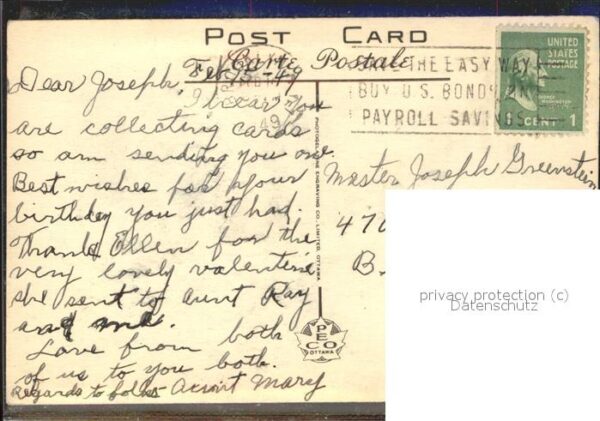 POST CARD
Carte Postale
Feb 15-49
THE EASY WAY
BUY U.S. BONDS
PAYROLL SAVIN
UNITED
STATES
POSTAGE
1 CENT 1
Dear Joseph,
I hear you
are collecting cards
so am sending you one.
Best wishes for your
birthday you just had.
Thank Ellen for the
very lovely valentine
she sent to Aunt Ray
and me.
Love from both
of us to you both.
Regards to folks Aunt Mary
PHOTOGELATINE ENGRAVING CO. LIMITED, OTTAWA
PECO
OTTAWA
Master Joseph Greenstein
470
B.
privacy protection (c)
Datenschutz